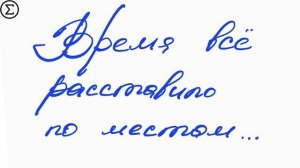 Σ
Время всё
расставило
по местам...